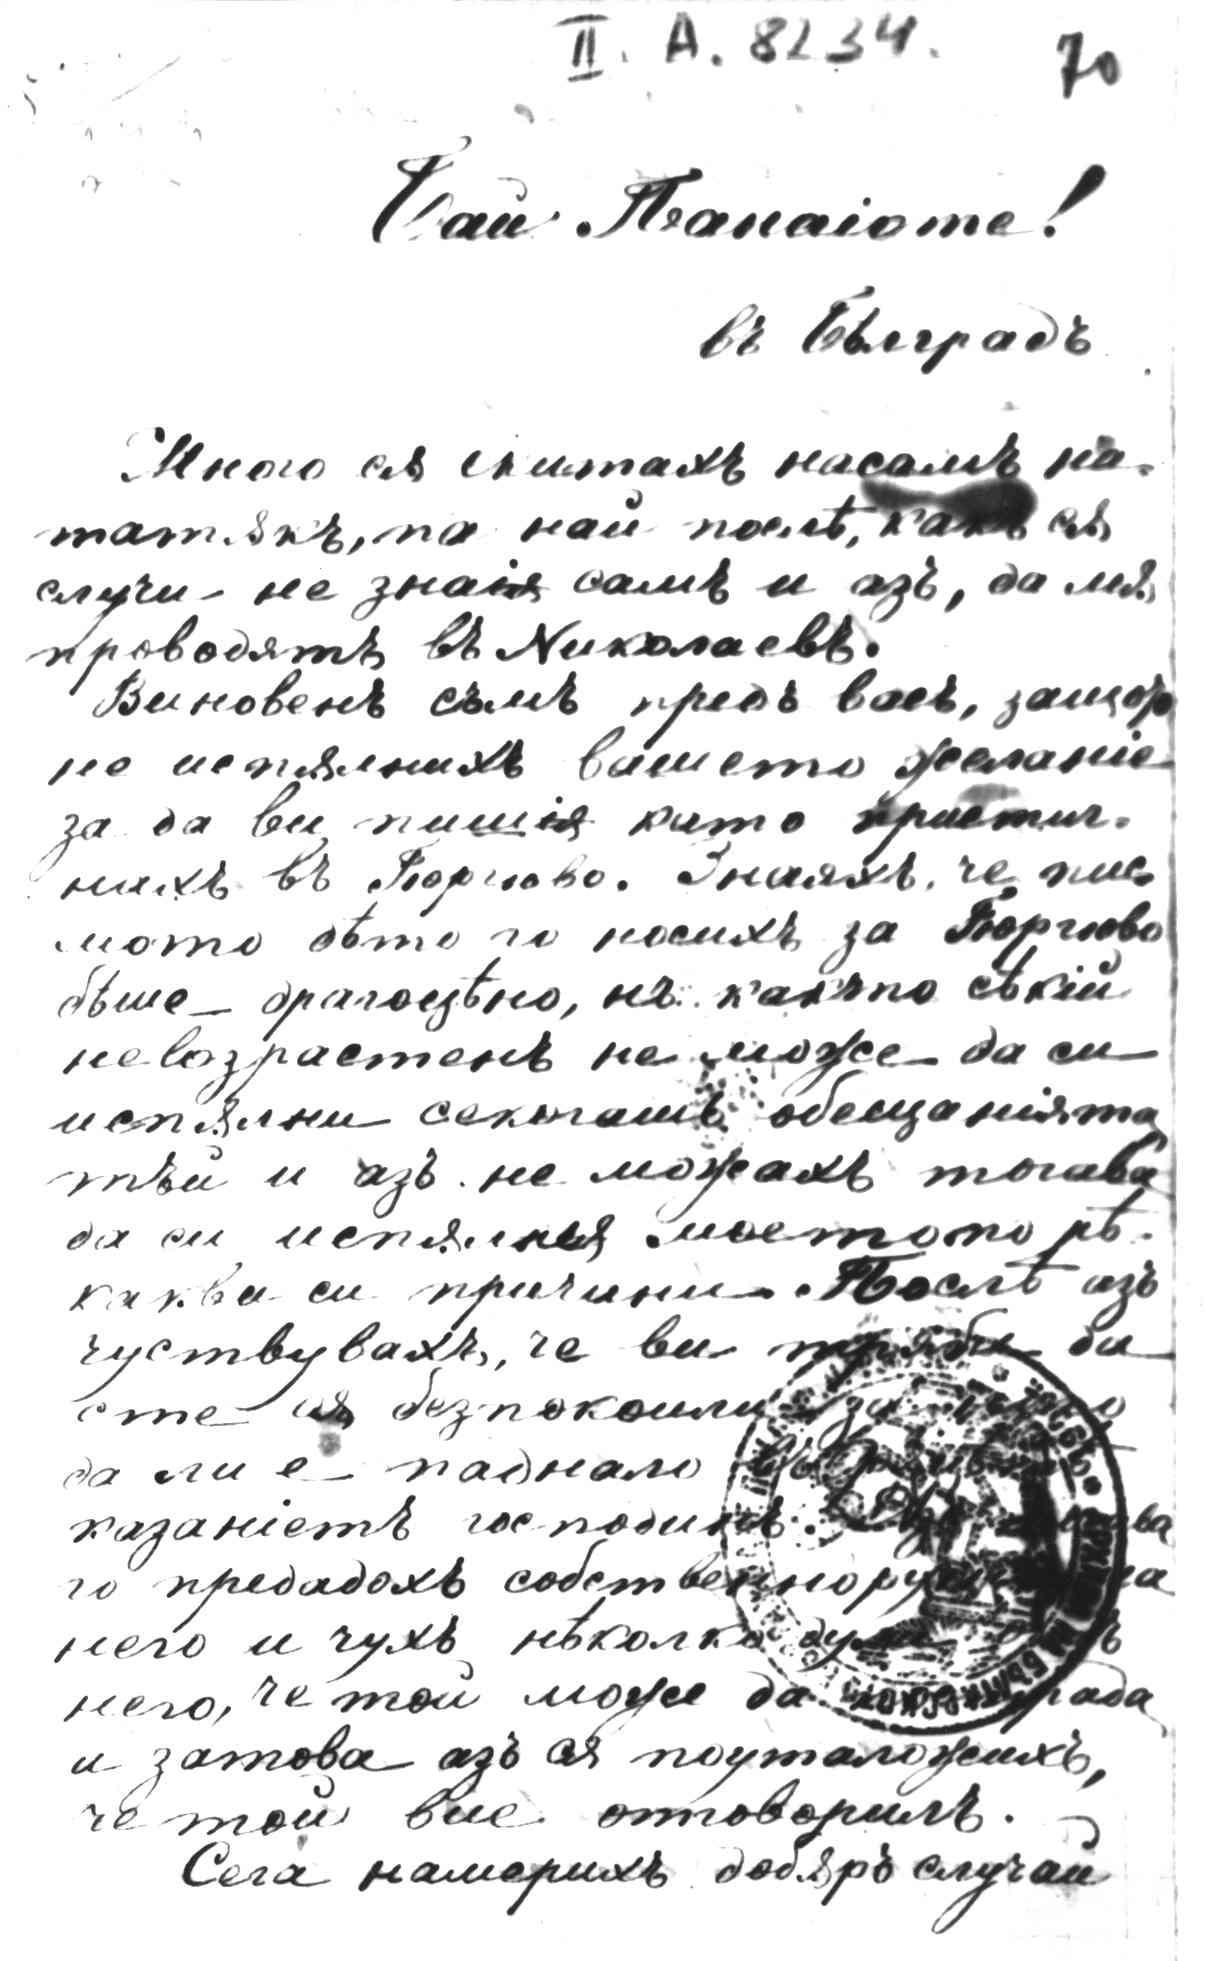 II. А. 8234. 70
Бай Панаіоте!
въ Бѣлградъ
Много ся скитахъ насамъ на-
татякъ, па най послѣ, какъ ся
случи не знаія самъ и азъ, да мя
проводятъ въ Николаевъ.
Виновенъ съмъ предъ васъ, защо
не испялнихъ вашето желаніе
за да ви пишія като пристиг-
нихъ въ Гюргюво. Знаяхъ, че пис
мото дѣто го носихъ за Гюргюво
бѣше драгоцѣно, нъ какъто сѣкій
невозрастенъ не може да си
испялни секогашъ обещаніята
тъй и азъ не можахъ тогава
да си испялня моето по нѣ-
какви си причини. Послѣ азъ
чуствувахъ, че ви трябва да
сте ся безпокоили за
да ли е паднало въ
казаніетъ господинъ. Азъ
го предадохъ собственноръчно на
него и чухъ нѣколко думи
него, че той може да
и затова азъ ся поуталожихъ,
че той вие отговорилъ.
Сега намерихъ добяръ случай